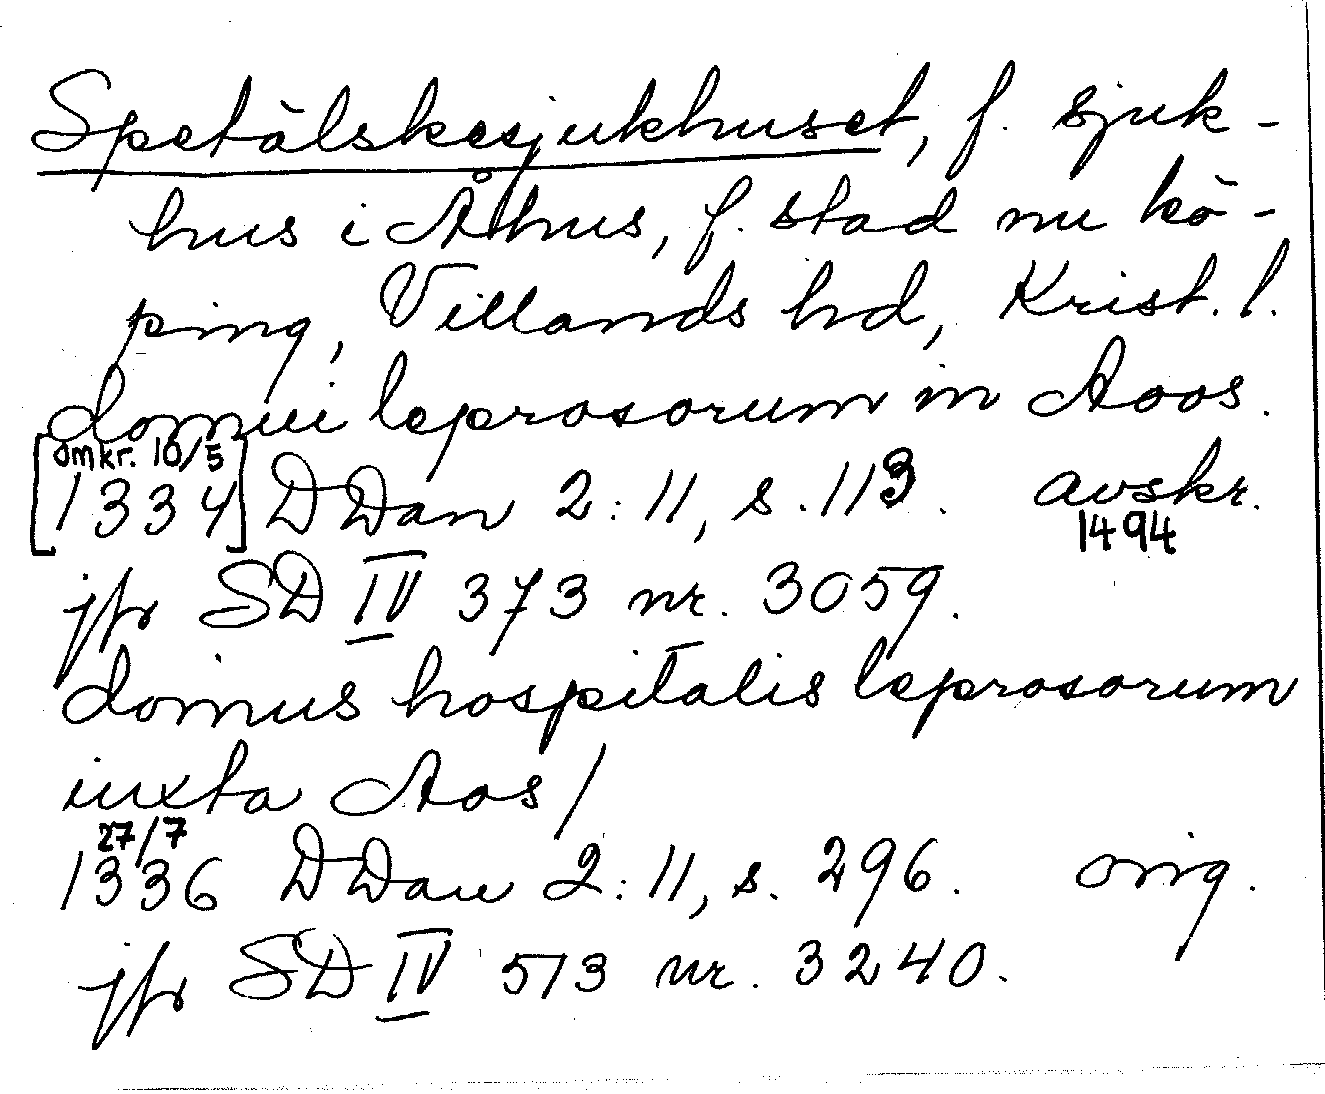 Spetälskesjukhuset, f. sjuk-
hus i Åhus, f. stad nu kö-
ping, Villands hd, Krist. l.
domui leprosorum in Aoos.
[omkr. 10/5
1334] DDan 2:11, s. 113. avskr.
1494
jfr SD IV 373 nr. 3059.
domus hospitalis leprosorum
iuxta Aos/
27/7
1336 DDan 2:11, s. 296. orig.
jfr SD IV 513 nr. 3240.